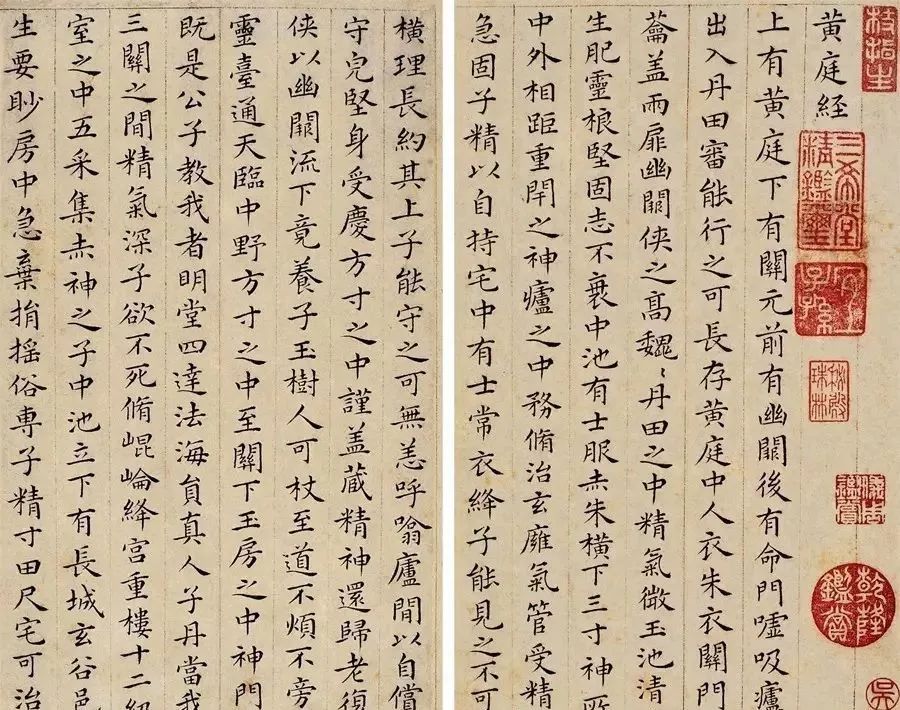 枝指生
三希堂精鑑璽
宜子孫
祕殿珠林
乾隆鑑賞
吳
黃庭経
上有黃庭下有關元前有幽闕後有命門嘘吸廬
出入丹田審能行之可長存黃庭中人衣朱衣關門
蘥盖兩扉幽闕俠之髙巍〻丹田之中精氣微玉池清
生肥靈根堅固志不衰中池有士服赤朱橫下三寸神所
中外相距重閇之神廬之中務脩治玄廱氣管受精
急固子精以自持宅中有士常衣絳子能見之不可
橫理長約其上子能守之可無恙呼噏廬閒以自償
守皃堅身受慶方寸之中謹盖蔵精神還歸老復
俠以幽闕流下竟養子玉樹人可杖至道不煩不旁
靈臺通天臨中野方寸之中至關下玉房之中神門
既是公子教我者明堂四達法海貟真人子丹當我
三關之閒精氣深子欲不死脩崐崘絳宫重樓十二級
室之中五采集赤神之子中池立下有長城玄谷邑
生要眇房中急棄捐揺俗專子精寸田尺宅可治